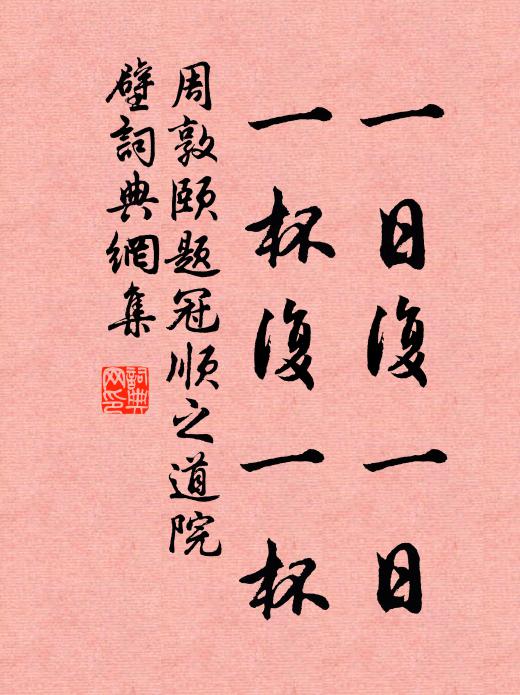 一日復一日
一杯復一杯
周敦頤题冠順之道院
壁詞典網集
詞典网印